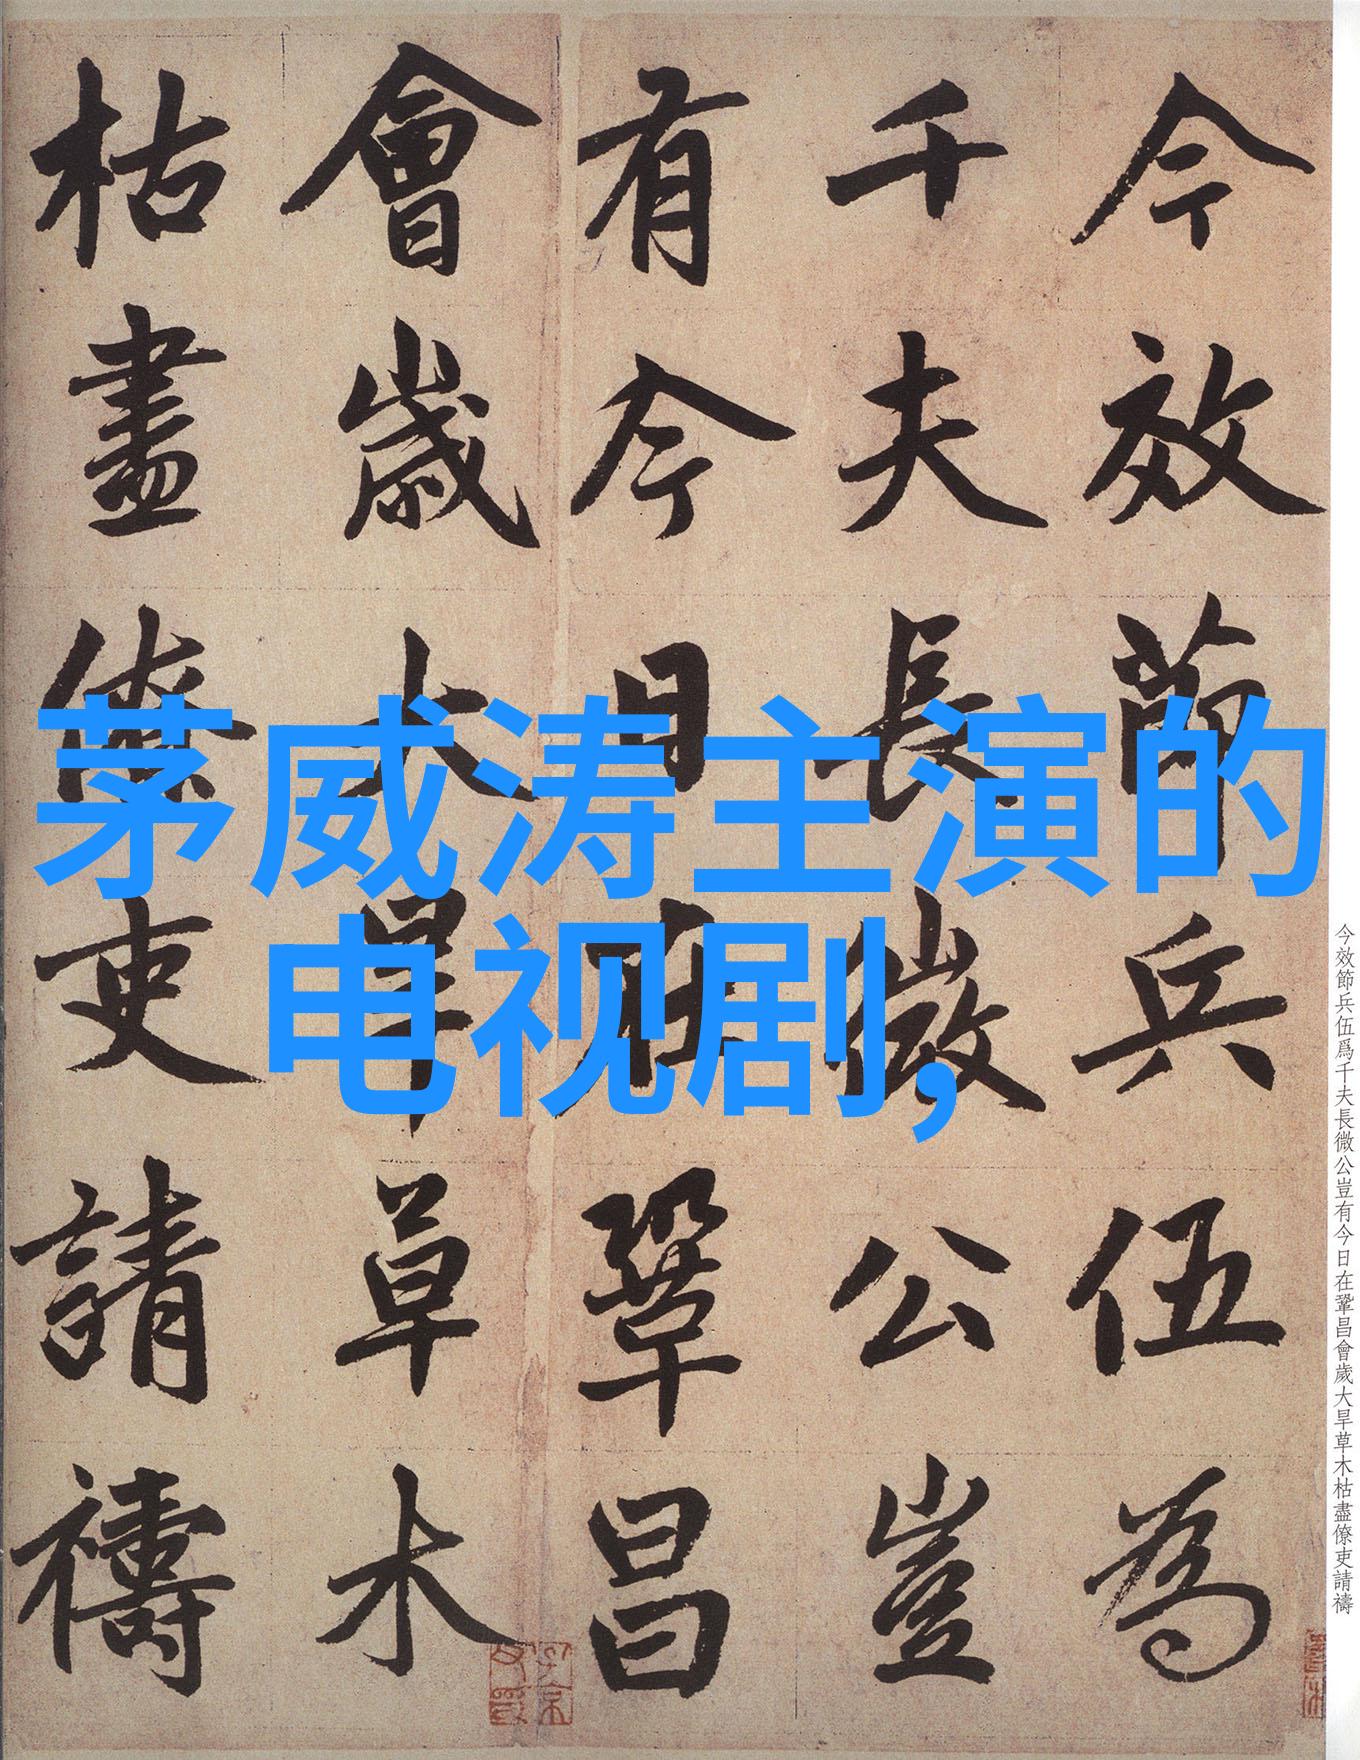 今效節兵伍為
千夫長微公豈
有今日在鞏昌
會歲大旱草木
枯盡僚吏請禱
茅威涛主演的
电视剧,
今效節兵伍爲千夫長微公豈有今日在鞏昌會歲大旱草木枯盡僚吏請禱